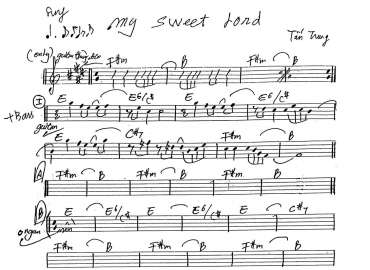 my sweet Lord
Tấn Trung
(only) guitar
F#m B F#m B
I E E6/C# E E6/C#
+Bass
guitar
E C#7 F#m B
A F#m B F#m B F#m B
B E E6/C# E E6/C# E C#7
organ
F#m B F#m B F#m B